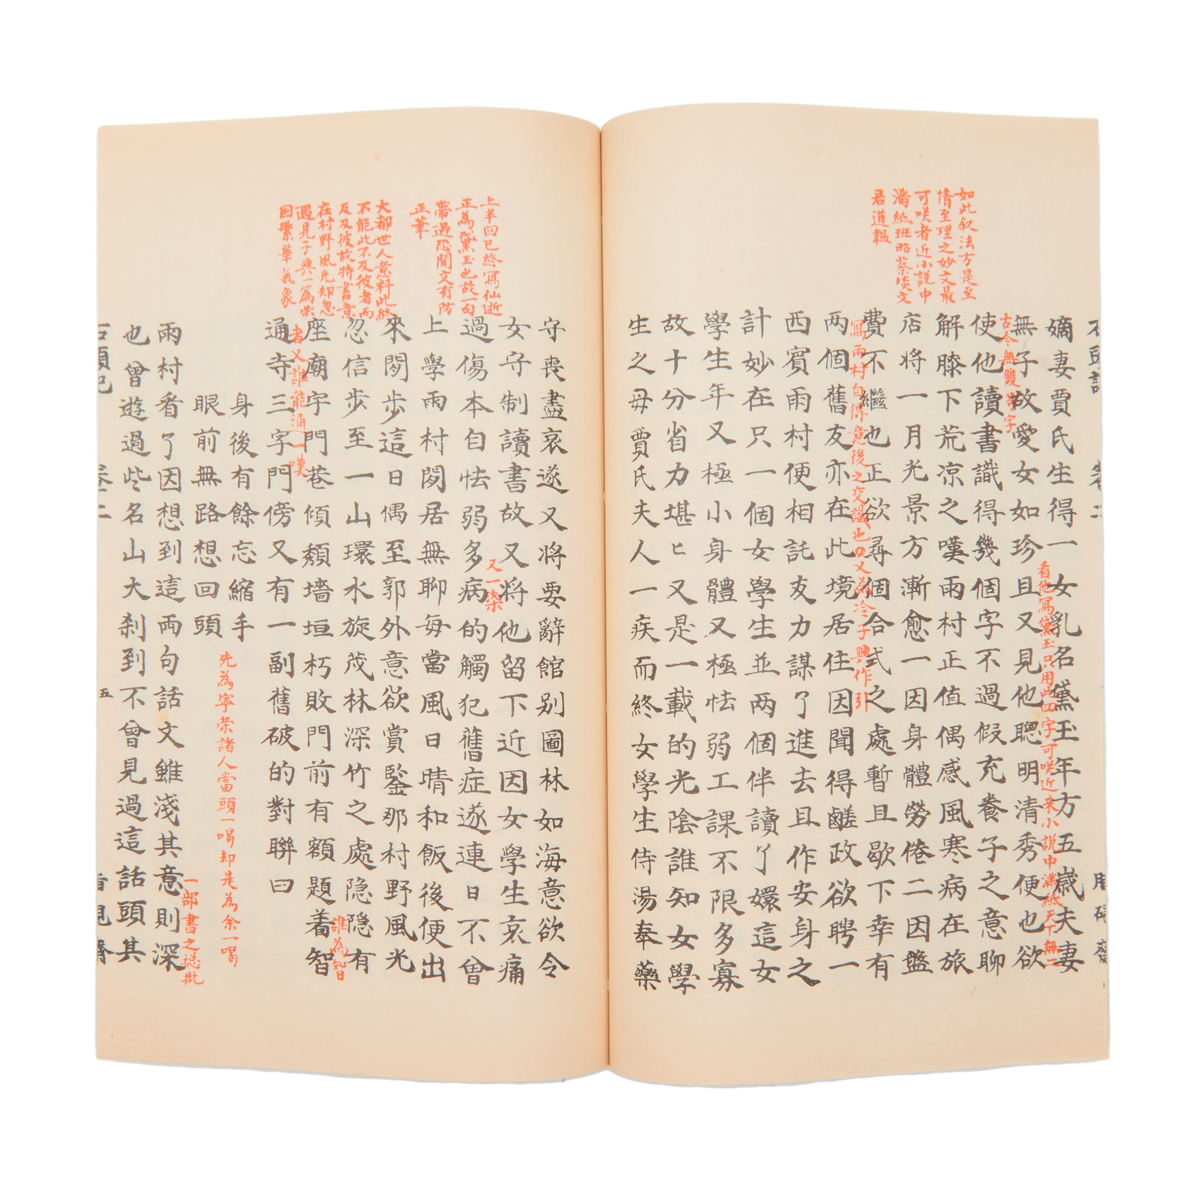 如此叙法方是至
情至理之妙文最
可咲者近小說中
滿紙班昭蔡琰文
君道韞
石頭記 卷二
嫡妻賈氏生得一女乳名黛玉年方五歲夫妻
無子故愛女如珍且又見他聰明清秀便也欲
看他寫黛玉只用此四字可咲近來小說中滿紙天下無二
古今無雙等字
使他讀書識得幾個字不過假充養子之意聊
解膝下荒凉之嘆雨村正值偶感風寒病在旅
店將一月光景方漸愈一因身體勞倦二因盤
費不繼也正欲尋個合式之處暫且歇下幸有
寫雨村自得意後之交識也又為冷子興作引
兩個舊友亦在此境居住因聞得鹺政欲聘一
西賓雨村便相託友力謀了進去且作安身之
計妙在只一個女學生並兩個伴讀丫嬛這女
學生年又極小身體又極怯弱工課不限多寡
故十分省力堪堪又是一載的光陰誰知女學
生之母賈氏夫人一疾而終女學生侍湯奉藥
上半回已終寫仙逝
正為黛玉也故一句
帶過恐閒文有防
正筆
守喪盡哀遂又將要辭館别圖林如海意欲令
女守制讀書故又將他留下近因女學生哀痛
又一染
過傷本自怯弱多病的觸犯舊症遂連日不曾
上學雨村閒居無聊每當風日晴和飯後便出
大都世人意料此終
不能此不及彼者而
反及彼故特書意
在村野風光却忽
遇見子興一篇榮
國繁華氣象
來閒步這日偶至郭外意欲賞鑒那村野風光
忽信步至一山環水旋茂林深竹之處隐隐有
座廟宇門巷傾頹墻垣朽敗門前有額題着智
誰為智
者又誰能通一嘆
通寺三字門傍又有一副舊破的對聯曰
身後有餘忘縮手
眼前無路想回頭
先為寧榮諸人當頭一喝却是為余一喝
雨村看了因想到這兩句話文雖淺其意則深
一部書之總批
也曾遊過些名山大刹到不曾見過這話頭其
石頭記 卷二 五